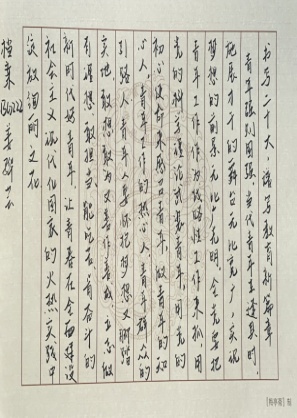 书写二十大,谱写教育新篇章
青年强则国强,当代青年生逢其时,
施展才干的舞台无比广阔,实现
梦想的前景无比光明。全党要把
青年工作作为战略性工作来抓,用
党的科学理论武装青年,用党的
初心使命感召青年,做青年朋友的知
心人、青年工作的热心人、青年群众的
引路人。青年人要怀抱梦想又脚踏
实地,敢想敢为又善作善成,立志做
有理想、敢担当、能吃苦、肯奋斗的
新时代好青年,让青春在全面建设
社会主义现代化国家的火热实践中
绽放绚丽之花
档案